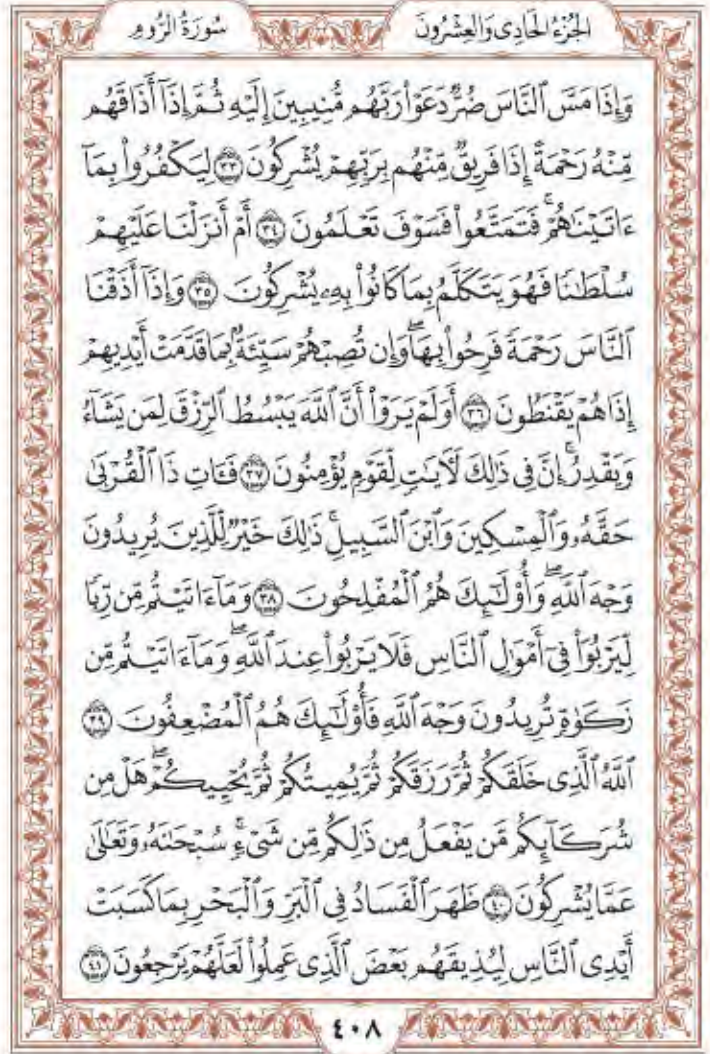 الجُزْءُ الحَادِى وَالعِشْرُونَ
سُورَةُ الرُّومِ
وَإِذَا مَسَّ ٱلنَّاسَ ضُرٌّ دَعَوْا۟ رَبَّهُم مُّنِيبِينَ إِلَيْهِ ثُمَّ إِذَآ أَذَاقَهُم
مِّنْهُ رَحْمَةً إِذَا فَرِيقٌ مِّنْهُم بِرَبِّهِمْ يُشْرِكُونَ ٣٣ لِيَكْفُرُوا۟ بِمَآ
ءَاتَيْنَٰهُمْ ۚ فَتَمَتَّعُوا۟ فَسَوْفَ تَعْلَمُونَ ٣٤ أَمْ أَنزَلْنَا عَلَيْهِمْ
سُلْطَٰنًا فَهُوَ يَتَكَلَّمُ بِمَا كَانُوا۟ بِهِۦ يُشْرِكُونَ ٣٥ وَإِذَآ أَذَقْنَا
ٱلنَّاسَ رَحْمَةً فَرِحُوا۟ بِهَا ۖ وَإِن تُصِبْهُمْ سَيِّئَةٌۢ بِمَا قَدَّمَتْ أَيْدِيهِمْ
إِذَا هُمْ يَقْنَطُونَ ٣٦ أَوَلَمْ يَرَوْا۟ أَنَّ ٱللَّهَ يَبْسُطُ ٱلرِّزْقَ لِمَن يَشَآءُ
وَيَقْدِرُ ۚ إِنَّ فِى ذَٰلِكَ لَءَايَٰتٍ لِّقَوْمٍ يُؤْمِنُونَ ٣٧ فَـَٔاتِ ذَا ٱلْقُرْبَىٰ
حَقَّهُۥ وَٱلْمِسْكِينَ وَٱبْنَ ٱلسَّبِيلِ ۚ ذَٰلِكَ خَيْرٌ لِّلَّذِينَ يُرِيدُونَ
وَجْهَ ٱللَّهِ ۖ وَأُو۟لَٰٓئِكَ هُمُ ٱلْمُفْلِحُونَ ٣٨ وَمَآ ءَاتَيْتُم مِّن رِّبًا
لِّيَرْبُوَا۟ فِىٓ أَمْوَٰلِ ٱلنَّاسِ فَلَا يَرْبُوا۟ عِندَ ٱللَّهِ ۖ وَمَآ ءَاتَيْتُم مِّن
زَكَوٰةٍ تُرِيدُونَ وَجْهَ ٱللَّهِ فَأُو۟لَٰٓئِكَ هُمُ ٱلْمُضْعِفُونَ ٣٩
ٱللَّهُ ٱلَّذِى خَلَقَكُمْ ثُمَّ رَزَقَكُمْ ثُمَّ يُمِيتُكُمْ ثُمَّ يُحْيِيكُمْ ۖ هَلْ مِن
شُرَكَآئِكُم مَّن يَفْعَلُ مِن ذَٰلِكُم مِّن شَىْءٍ ۚ سُبْحَٰنَهُۥ وَتَعَٰلَىٰ
عَمَّا يُشْرِكُونَ ٤٠ ظَهَرَ ٱلْفَسَادُ فِى ٱلْبَرِّ وَٱلْبَحْرِ بِمَا كَسَبَتْ
أَيْدِى ٱلنَّاسِ لِيُذِيقَهُم بَعْضَ ٱلَّذِى عَمِلُوا۟ لَعَلَّهُمْ يَرْجِعُونَ ٤١
٤٠٨